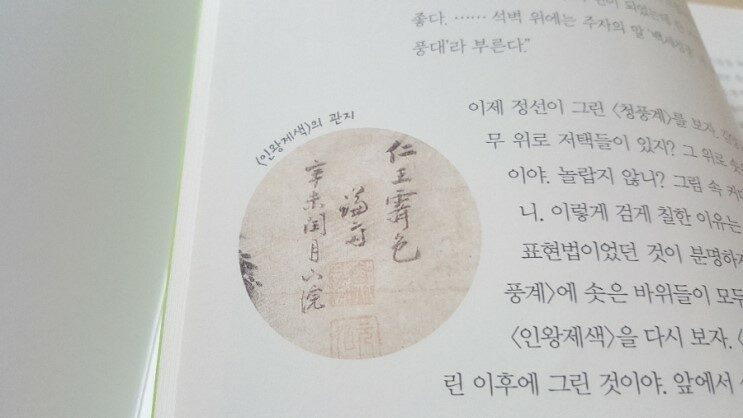 되었는데
좋다. …… 석벽 위에는 주자의 말
풍대'라 부른다.”
〈인왕제색〉의 관지
仁王霽色
謙齋
辛未閏月下浣
이제 정선이 그린 〈청풍계〉를 보자.
무 위로 저택들이 있지? 그 위로 솟
이야. 놀랍지 않니? 그림 속
니. 이렇게 검게 칠한 이유는
표현법이었던 것이 분명하
풍계〉에 솟은 바위들이 모두
〈인왕제색〉을 다시 보자. 〈
린 이후에 그린 것이야. 앞에서